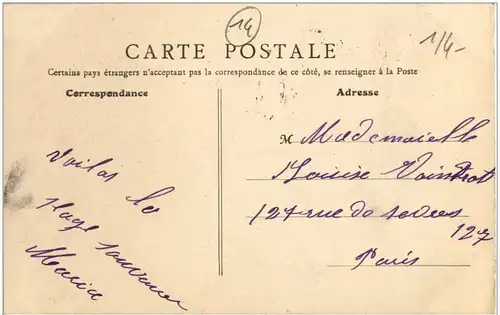 14
1/4-
CARTE POSTALE
Certains pays étrangers n'acceptant pas la correspondance de ce côté, se renseigner à la Poste
Correspondance
Adresse
Voilas le
Maria
M Mademoiselle
Louise
127 rue de sevres
127
Paris